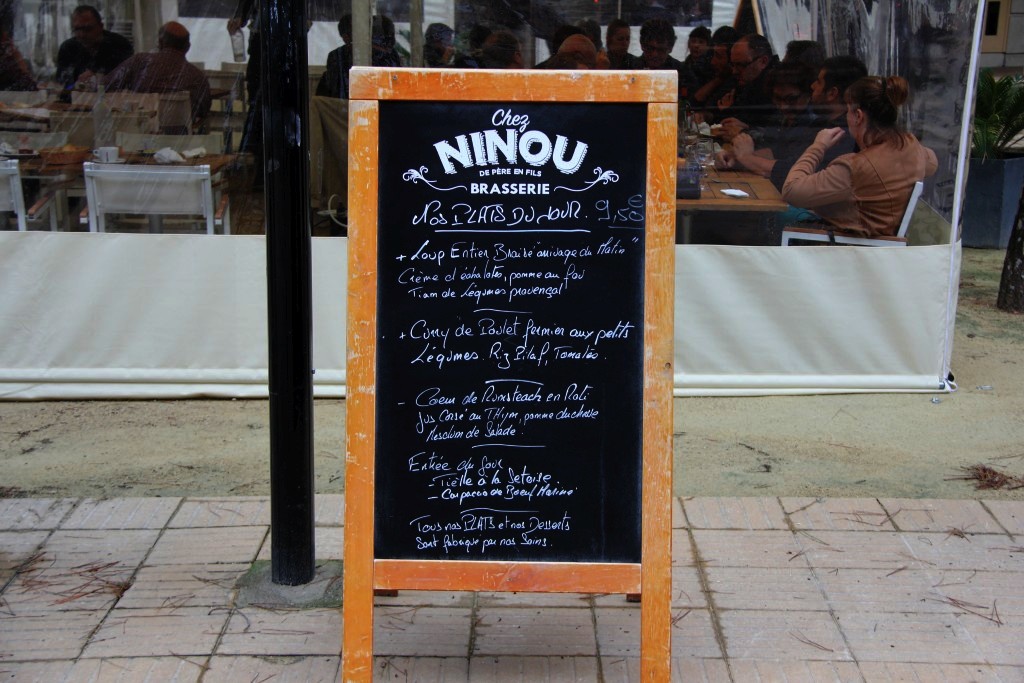 Chez
NINOU
DE PÈRE EN FILS
BRASSERIE
Nos PLATS DU JOUR. 9,50€
+ Loup Entier Braisé "arrivage du Matin"
Crème d'échalotes, pomme au four
Tiam de Légumes provençal
+ Curry de Poulet fermier aux petits
Légumes. Riz Pilaf, Tomates.
- Coeur de Rumsteack en Roti
Jus Corsé au THym, pomme duchesse
Mesclum de Salade.
Entrée du Jour
- Tièlle à la Setoise
- Carpaccio de Boeuf Mariné
Tous nos PLATS et nos Desserts
Sont fabriqué par nos Soins.